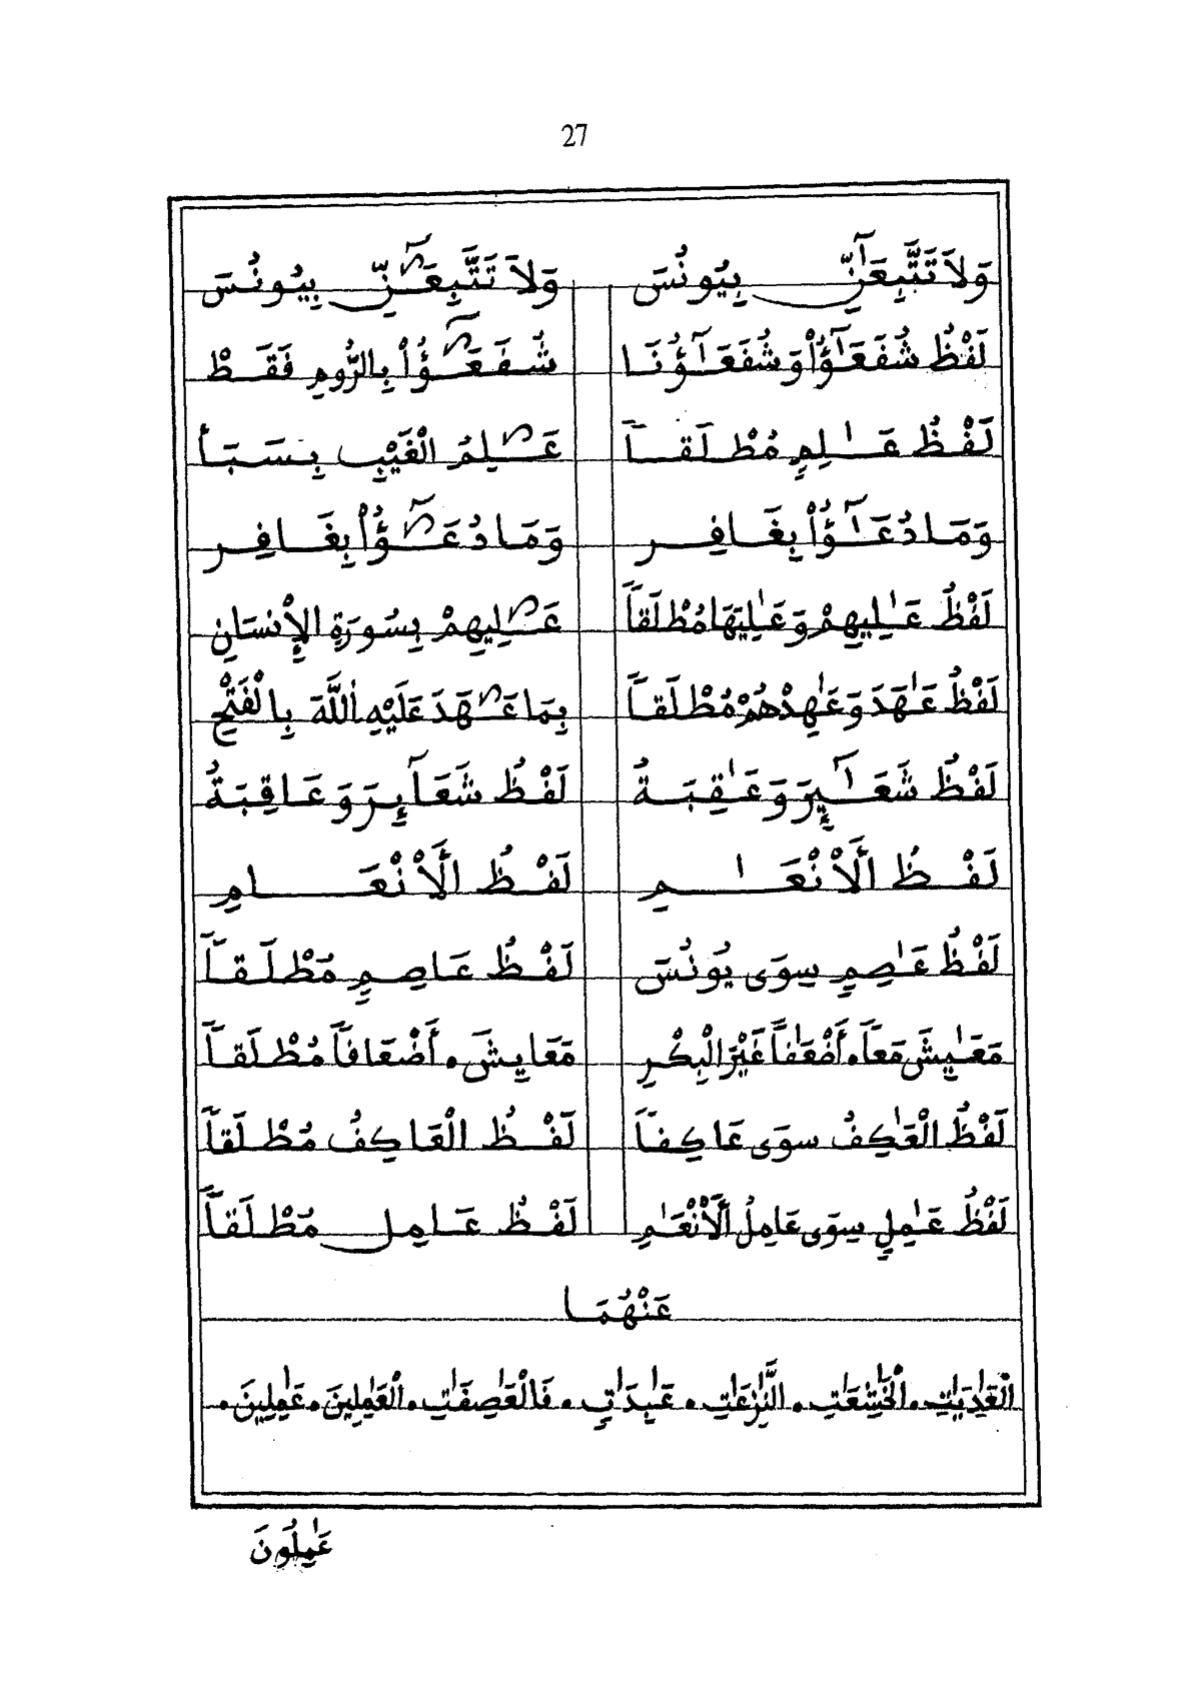 27
وَلَا تَتَّبِعَآنِّ بِيُونُسَ وَلَا تَتَّبِعَآنِّ بِيُونُسَ
لَفْظُ شُفَعَـٰٓؤُاْ وَشُفَعَـٰٓؤُنَا شُفَعَـٰٓؤُاْ بِالرُّومِ فَقَطْ
لَفْظُ عَـٰلِمِ مُطْلَقاً عَـٰلِمُ الْغَيْبِ بِسَبَأ
وَمَا دُعَـٰٓؤُاْ بِغَافِرِ وَمَا دُعَـٰٓؤُاْ بِغَافِرِ
لَفْظُ عَـٰلِيهِمْ وَعَـٰلِيَهَا مُطْلَقاً عَـٰلِيهِمْ بِسُورَةِ الْإِنسَانِ
لَفْظُ عَـٰهَدَ وَعَـٰهِدْهُمْ مُطْلَقاً بِمَا عَـٰهَدَ عَلَيْهِ اللَّهَ بِالْفَتْحِ
لَفْظُ شَعَـٰٓئِرَ وَعَـٰقِبَةُ لَفْظُ شَعَآئِرَ وَعَاقِبَةُ
لَفْظُ الْأَنْعَـٰمِ لَفْظُ الْأَنْعَامِ
لَفْظُ عَـٰصِمٍ سِوَى يُونُسَ لَفْظُ عَاصِمٍ مُطْلَقاً
مَعَـٰيِشَ مَعاً. أَضْعَـٰفاً غَيْرَ الْبِكْرِ مَعَايِشَ. أَضْعَافاً مُطْلَقاً
لَفْظُ الْعَـٰكِفُ سِوَى عَاكِفاً لَفْظُ الْعَاكِفُ مُطْلَقاً
لَفْظُ عَـٰمِلٍ سِوَى عَامِلُ الْأَنْعَـٰمِ لَفْظُ عَـامِلٍ مُطْلَقاً
عَنْهُمَا
الْعَـٰدِيَـٰتِ. الْخَـٰشِعَـٰتِ. النَّـٰزِعَـٰتِ. عَـٰبِدَٰتٍ. فَالْعَـٰصِفَـٰتِ. الْعَـٰمِلِينَ. عَـٰمِلِينَ.
عَـٰمِلُونَ